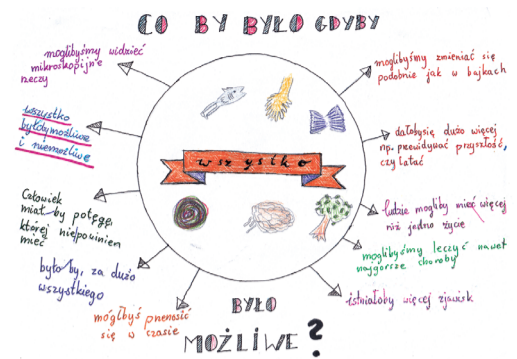 CO BY BYŁO GDYBY
moglibyśmy widzieć
mikroskopijne
rzeczy
wszystko
byłobymożliwe
i niemożliwe
Człowiek
miał by potęgę,
której niepowinien
mieć
było by, za dużo
wszystkiego
mógłbyś pnenosić
się w czasie
wszystko
moglibyśmy zmieniać się
podobnie jak w bajkach
dałobysię dużo więcej
np. przewidywać przyszłość,
czy latać
ludzie mogliby mieć więcej
niż jedno życie
moglibyśmy leczyć nawet
najgorsze choroby
istniałoby więcej zjawisk
BYŁO
MOŻLIWE?